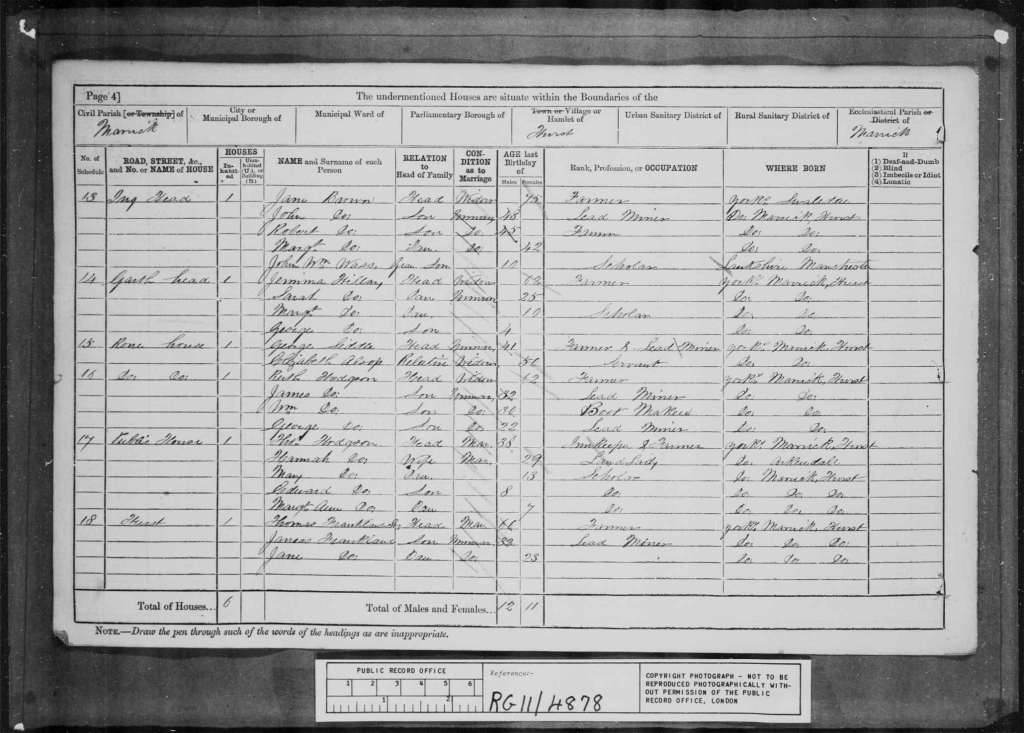 Page 4] The undermentioned Houses are situate within the Boundaries of the
Civil Parish [or Township] of City or Municipal Borough of Municipal Ward of Parliamentary Borough of Town or Village or Hamlet of Urban Sanitary District of Rural Sanitary District of Ecclesiastical Parish or District of
Marrick Hurst Marrick
No. of Schedule ROAD, STREET, &c., and No. or NAME of HOUSE HOUSES Inhabited Uninhabited (U.), or Building (B.) NAME and Surname of each Person RELATION to Head of Family CONDITION as to Marriage AGE last Birthday of Males Females Rank, Profession, or OCCUPATION WHERE BORN If (1) Deaf-and-Dumb (2) Blind (3) Imbecile or Idiot (4) Lunatic
13 Head 1 Jane Brown Head Widow 75 Farmer Yorks. Swaledale
John Do. Son Lead Miner Do. Marrick, Hurst
Robert Do. Son Do. 45 Farmer Do. Do.
Margt. Do. Dau. Do. 42 Do. Do.
John Wm. Son 10 Scholar Manchester
14 Garth head 1 Jemima Hillary Head Widow Farmer Yorks. Marrick, Hurst
Sarah Do. Dau 25 Do. Do.
Margt. Do. Dau. 10 Scholar Do. Do.
George Do. Son 4 Do. Do.
15 house 1 George Head 41 Farmer & Lead Miner Yorks. Marrick, Hurst
Elizabeth Alsop Relative Widow Servant Do. Do.
16 Do. Do. 1 Ruth Hodgson Head Widow 62 Farmer Yorks. Marrick, Hurst
James Do. Son 32 Lead Miner Do. Do.
Wm. Do. Son Do. 30 Boot Maker Do. Do.
George Do. Son Do. 22 Lead Miner Do. Do.
17 Public House 1 Thos. Hodgson Head Mar. 38 Innkeeper & Farmer Yorks. Marrick, Hurst
Hannah Do. Wife Mar. 29 Land Lady Do. Arkendale
Mary Do. Dau. 13 Scholar Do. Marrick, Hurst
Edward Do. Son 8 Do. Do. Do. Do.
Margt. Ann Do. Dau 7 Do. Do. Do. Do.
18 Hurst 1 Thomas Head Mar. 66 Farmer Yorks. Marrick, Hurst
James Son 32 Lead Miner Do. Do. Do.
Jane Do. Dau Do. 23 Do. Do. Do.
Total of Houses... 6 Total of Males and Females... 12 11
NOTE.—Draw the pen through such of the words of the headings as are inappropriate.
PUBLIC RECORD OFFICE
1 2 3 4 5 6
1 2
Reference:-
RG 11/4878
COPYRIGHT PHOTOGRAPH - NOT TO BE
REPRODUCED PHOTOGRAPHICALLY WITH-
OUT PERMISSION OF THE PUBLIC
RECORD OFFICE, LONDON